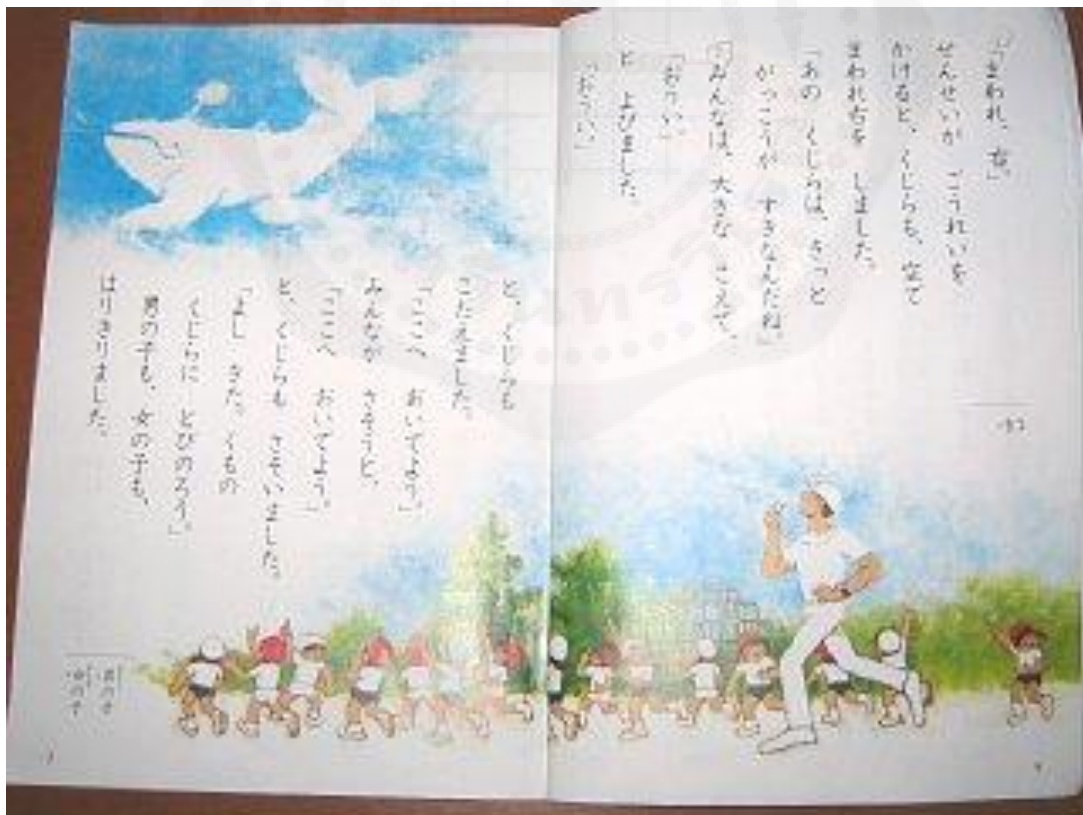 「まわれ、右。」
せんせいが ごうれいを
かけると、くじらも、空で
まわれ右を しました。
「あの くじらは、きっと
がっこうが すきなんだね。」
みんなは、大きな こえで、
「おうい。」
と よびました。
「おうい。」
と、くじらも
こたえました。
「ここへ おいでよう。」
みんなが さそうと、
「ここへ おいでよう。」
と、くじらも さそいました。
「よし きた。くもの
くじらに とびのろう。」
男の子も、女の子も、
はりきりました。
男の子
女の子